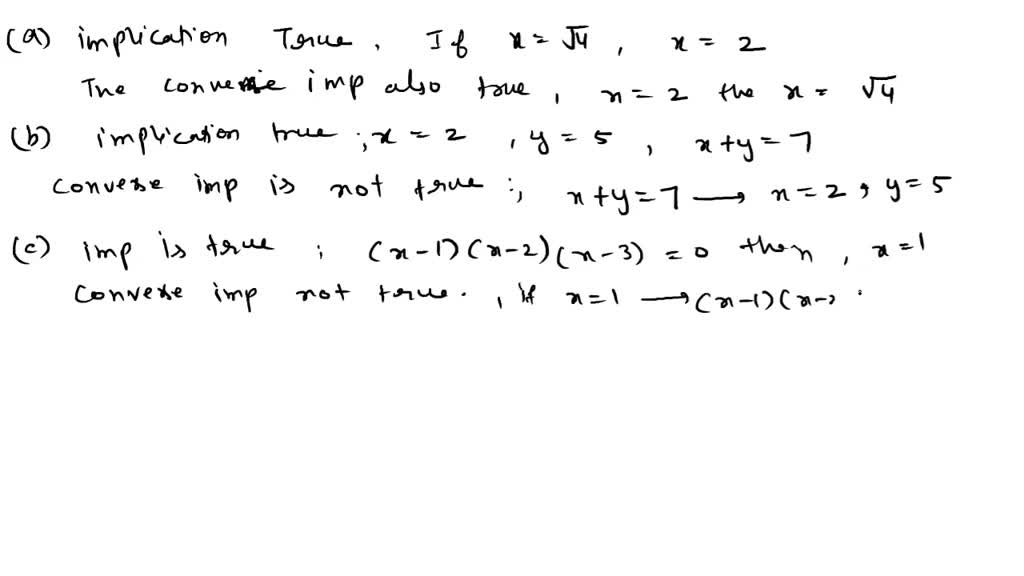 (a) implication True, If x = √4, x = 2
The converse imp also true, x = 2 the x = √4
(b) implication true ; x = 2, y = 5, x+y = 7
Converse imp is not true :, x+y = 7 → x = 2, y = 5
(c) imp is true ; (x-1)(x-2)(x-3) = 0 then, x = 1
Converse imp not true., if x = 1 → (x-1)(x-